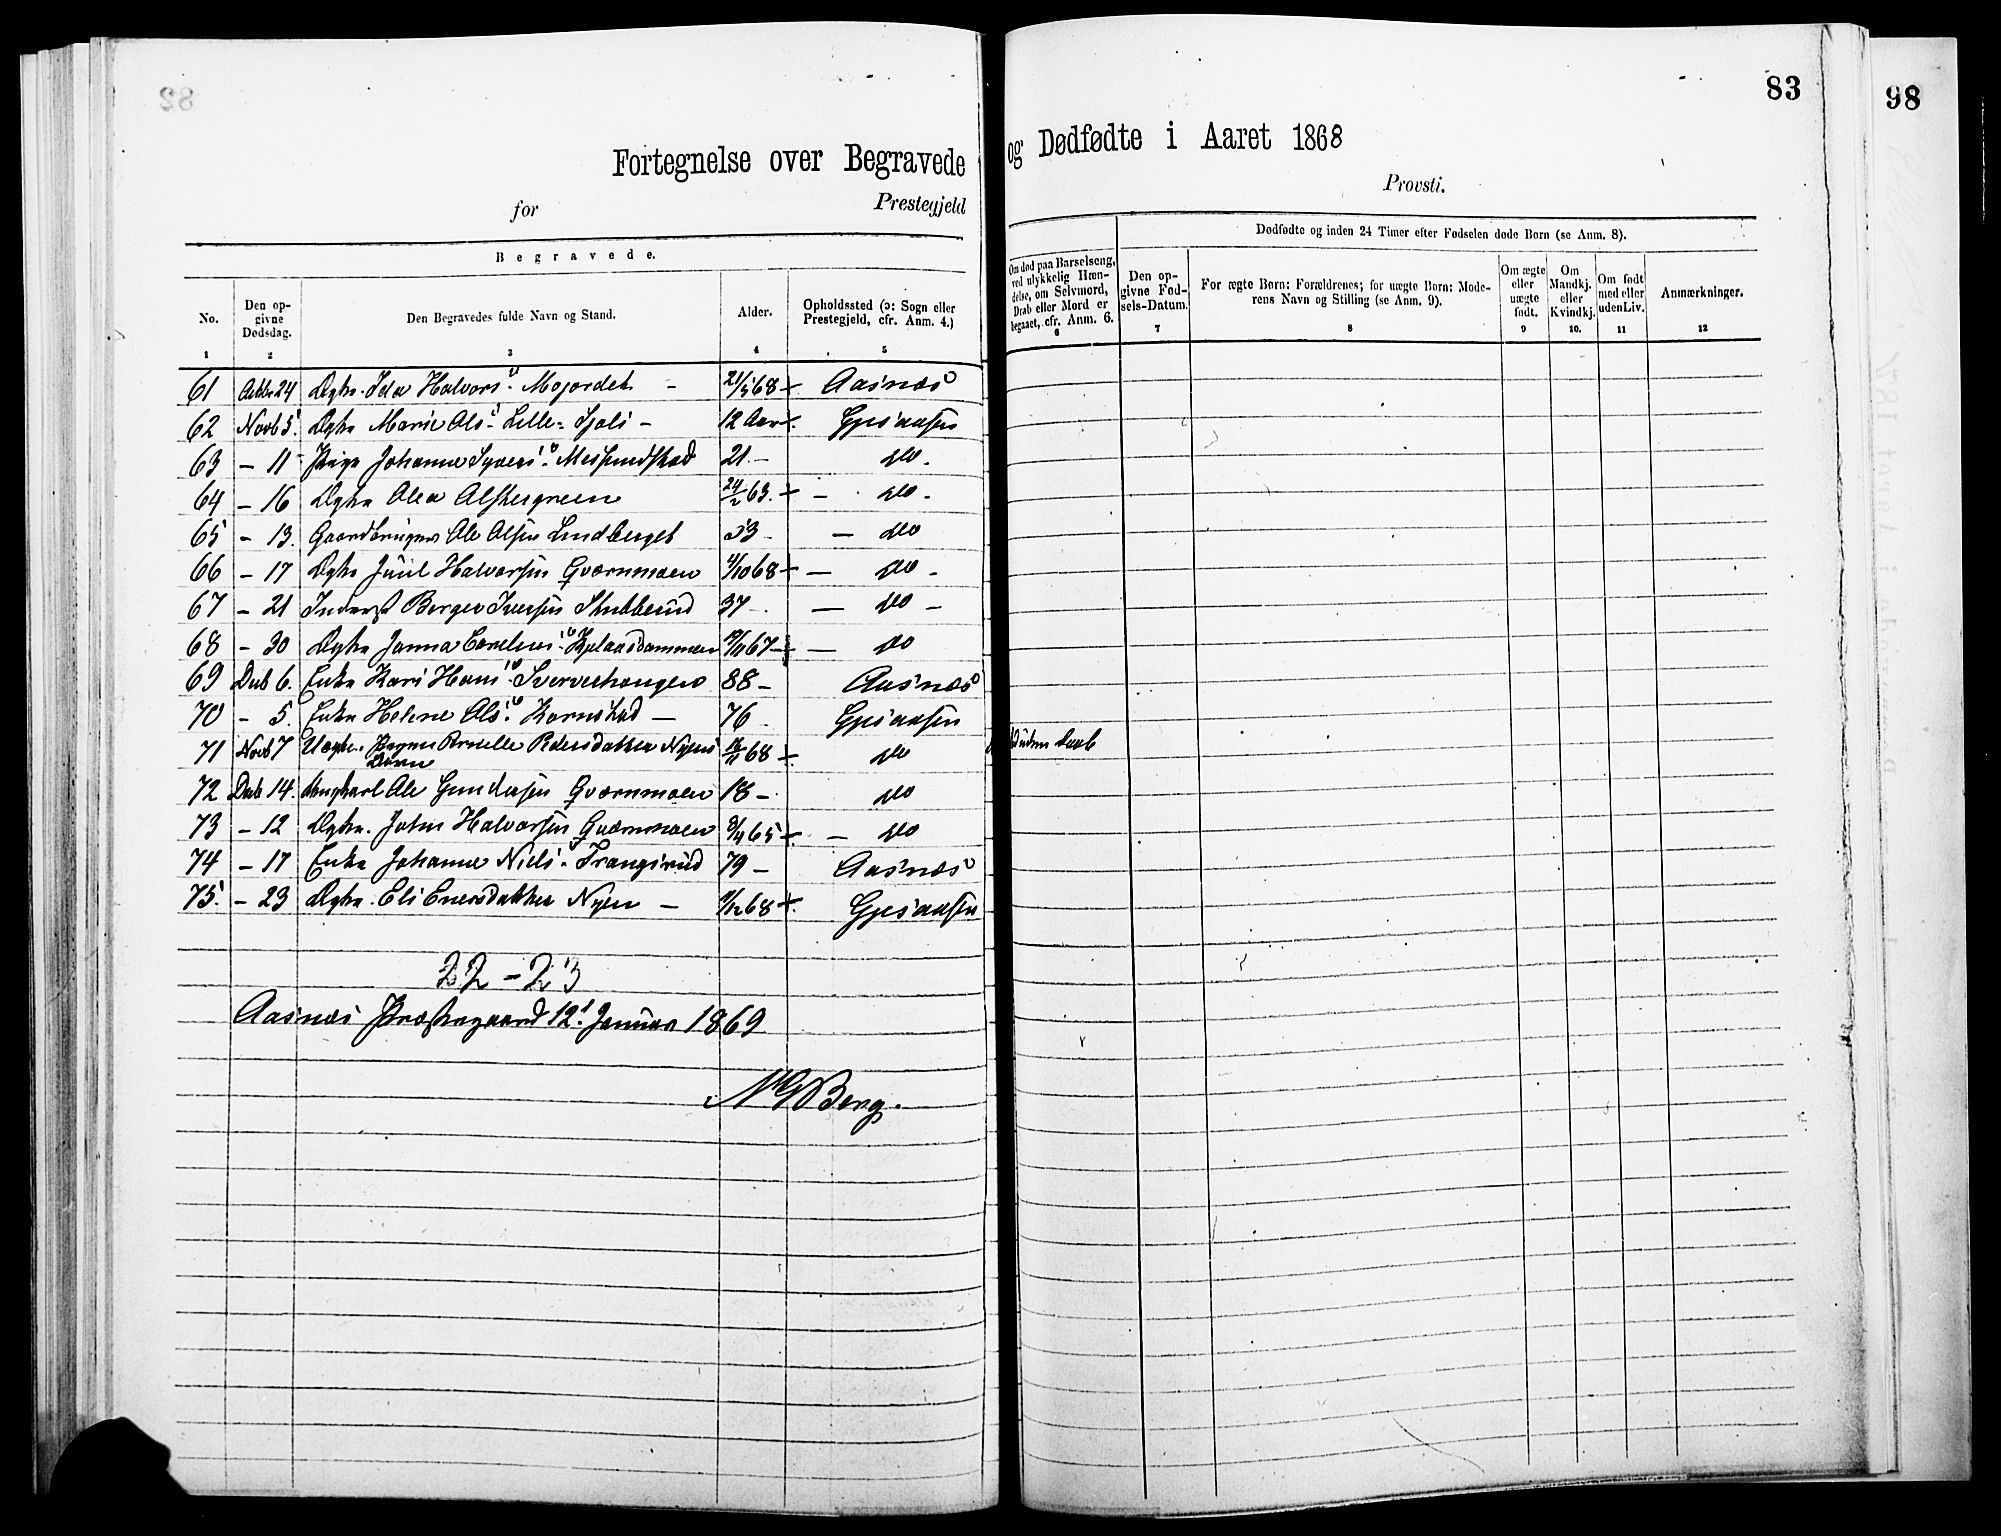 82
Fortegnelse over Begravede
for Prestegjeld
Begravede.
No. Den opgivne Dødsdag. Den Begravedes fulde Navn og Stand. Alder. Opholdssted (ɔ: Sogn eller Prestegjeld, cfr. Anm. 4.)
1 2 3 4 5
61 Octbr 24 Dgtr. Ida Halvors.D. Mojordet - 21/5 68 Aasnæs
62 Novb 5. Marie Ols.D. Lille-Sjoli - 12 Aar Gjesaasen
63 - 11 Pige Johanne Syvers.D. 21 - do -
64 - 16 Olea 24/2 63. - do -
65 - 13. Gaardbruger Ole Olsen Lindberget 53 - do
66 - 17 Juul Halvorsen Qværnmoen 4/10 68 - do -
67 - 21 Inderst Berger Iversen Stubberud 37 - - do -
68 - 30 Janna 67 - do
69 Decb 6. Enke Kari Hans.D. Sverveshaugen 88 - Aasnæs
70 - 5. Enke Helene Ols.D. Kornstad - 76 - Gjesaasen
71 Novb 7 Uægte Pigen Pernille Pedersdatter Nyens Barn 68 do
72 Decb 14. Ungkarl Ole Gundersen Qværnmoen 18 - do
73 - 12 John Halvorsen Qværnmoen 65 - do
74 - 17 Enke Johanne Niels.D. Trangsrud 79 - Aasnæs
75. - 23 Eli Enersdatter Nyen - 68 Gjesaasen
22 - 23
Aasnæs Præstegaard 12t. Januar 1869
Berg.
83
og Dødfødte i Aaret 1868
Provsti.
Om død paa Barselseng, ved ulykkelig Hændelse, om Selvmord, Drab eller Mord er begaaet, cfr. Anm. 6.
Dødfødte og inden 24 Timer efter Fødselen døde Børn (se Anm. 8).
Den opgivne Fødsels-Datum. For ægte Børn: Forældrenes; for uægte Børn: Moderens Navn og Stilling (se Anm. 9). Om ægte eller uægte født. Om Mandkj. eller Kvindkj. Om født med eller uden Liv. Anmærkninger.
6 7 8 9 10. 11 12
uden Daab
98